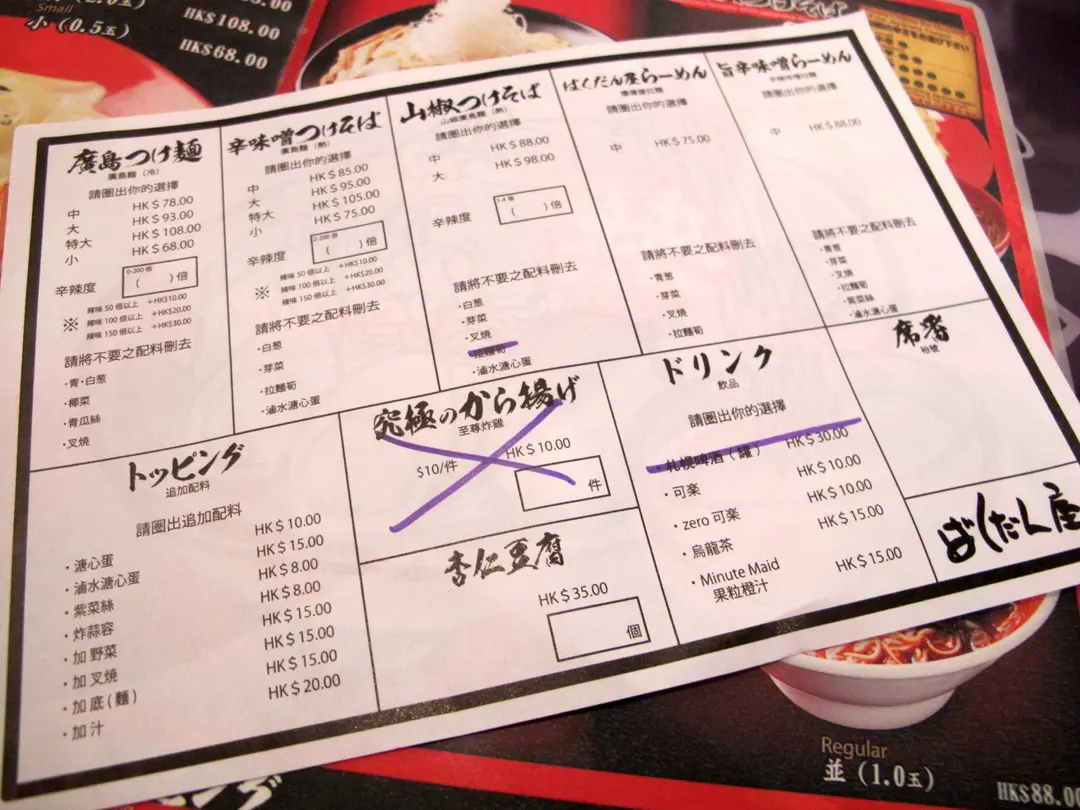 Small
小 (0.5玉)
HK$108.00
HK$68.00
廣島つけ麺
廣島麵（冷）
請圈出你的選擇
中 HK$78.00
大 HK$93.00
特大 HK$108.00
小 HK$68.00
辛辣度
0-200 倍
( ) 倍
※
辣味 50 倍以上 +HK$10.00
辣味 100 倍以上 +HK$20.00
辣味 150 倍以上 +HK$30.00
請將不要之配料刪去
・青・白葱
・椰菜
・青瓜絲
・叉燒
辛味噌つけそば
廣島麵（熱）
請圈出你的選擇
中 HK$85.00
大 HK$95.00
特大 HK$105.00
小 HK$75.00
辛辣度
0-200 倍
( ) 倍
※
辣味 50 倍以上 +HK$10.00
辣味 100 倍以上 +HK$20.00
辣味 150 倍以上 +HK$30.00
請將不要之配料刪去
・白葱
・芽菜
・拉麵筍
・滷水溏心蛋
山椒つけそば
山椒廣島麵（熱）
請圈出你的選擇
中 HK$88.00
大 HK$98.00
辛辣度
1-4 倍
( ) 倍
請將不要之配料刪去
・白葱
・芽菜
・叉燒
・拉麵筍
・滷水溏心蛋
ばくだん屋らーめん
請圈出你的選擇
中 HK$75.00
請將不要之配料刪去
・青葱
・芽菜
・叉燒
・拉麵筍
旨辛味噌らーめん
請圈出你的選擇
中 HK$88.00
請將不要之配料刪去
・青葱
・芽菜
・叉燒
・拉麵筍
・紫菜絲
・滷水溏心蛋
トッピング
追加配料
請圈出追加配料
・溏心蛋 HK$10.00
・滷水溏心蛋 HK$15.00
・紫菜絲 HK$8.00
・炸蒜容 HK$8.00
・加 野菜 HK$15.00
・加 叉燒 HK$15.00
・加 底 (麵) HK$15.00
・加 汁 HK$20.00
究極のから揚げ
至尊炸雞
$10/件 HK$10.00
件
杏仁豆腐
HK$35.00
個
ドリンク
飲品
請圈出你的選擇
・札幌啤酒（罐） HK$30.00
・可楽 HK$10.00
・zero 可楽 HK$10.00
・烏龍茶 HK$15.00
・Minute Maid
果粒橙汁 HK$15.00
席番
枱號
ばくだん屋
Regular
並 (1.0玉)
HK$88.00